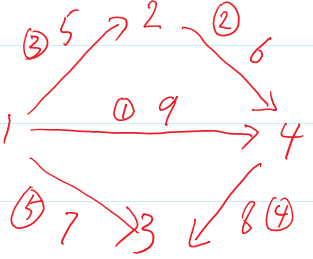 ③ 5 2 ② 6
1 ① 9 4
⑤ 7 3 8 ④